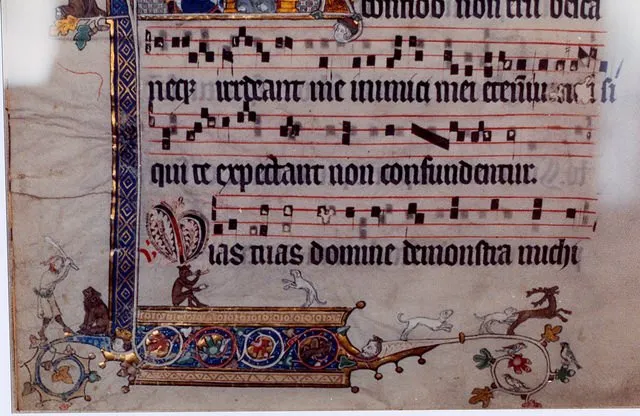 non erubesca
neqꝫ irrideant me inimici mei etenī si
qui te expectant non confundentur.
Vias tuas domine demonstra michi